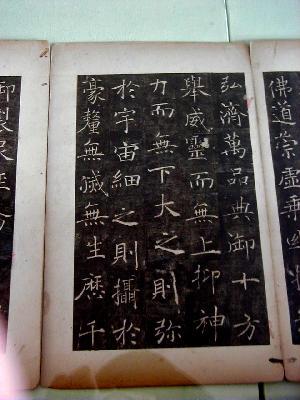 佛道崇虛乘幽
弘濟萬品典御十方
舉威靈而無上抑神
力而無下大之則弥
於宇宙細之則攝於
豪釐無滅無生歷千
御製